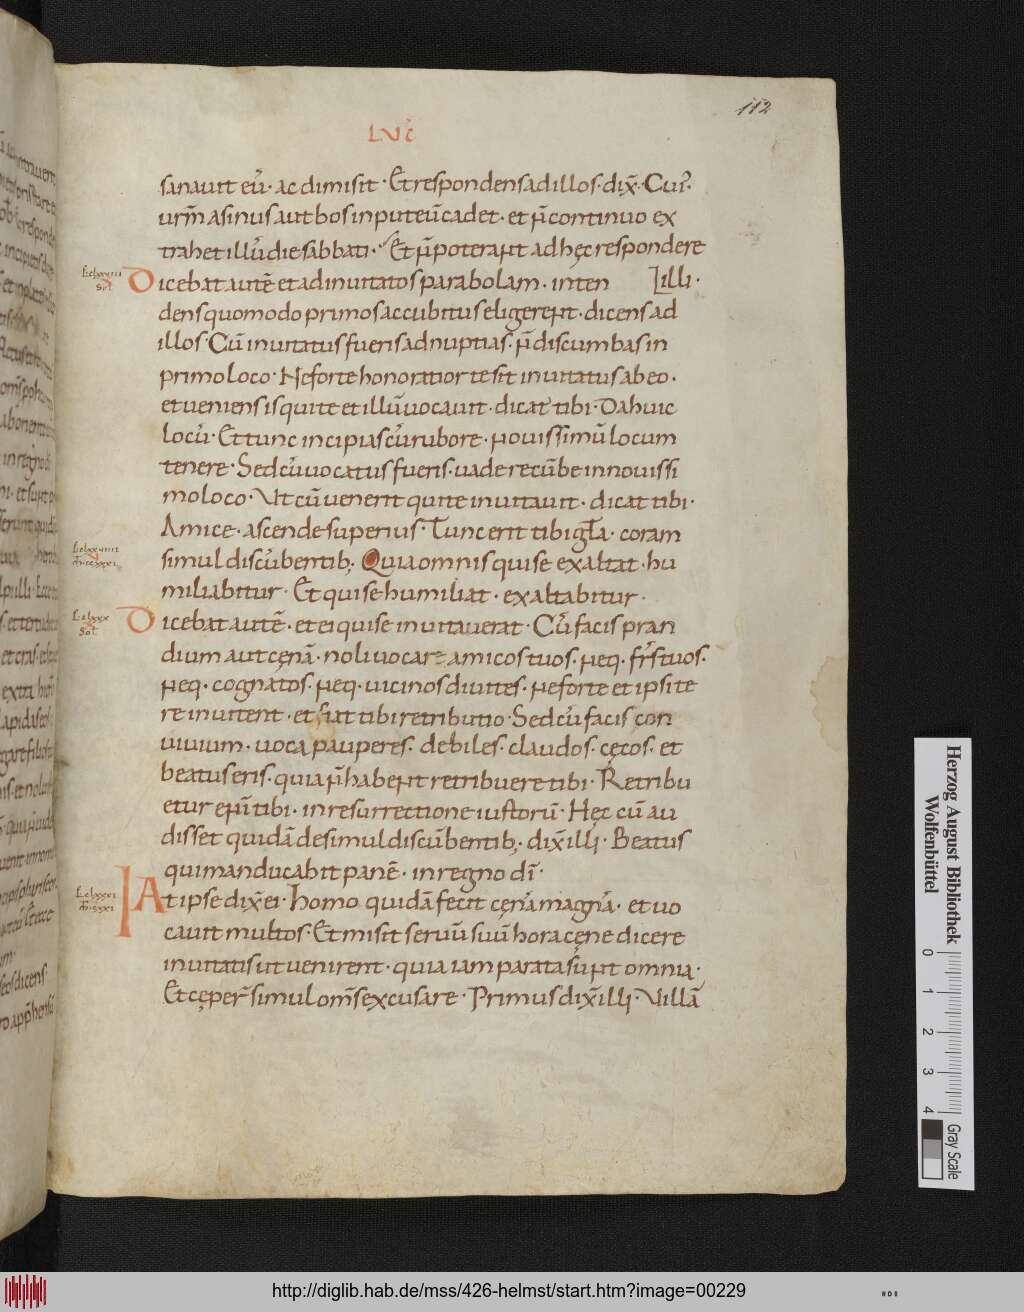 112
LUC̄
sanauit eū · ac dimisit · Et respondens ad illos · dix̄ · Cui'
urm̄ asinus aut bos in puteū cadet · et n̄ continuo ex
trahet illū die sabbati · Et n̄ poterant ad hęc respondere
Dicebat autē et ad inuitatos parabolam · inten illi ·
dens quomodo primos accubitus eligerent · dicens ad
illos · Cū inuitatus fueris ad nuptias · n̄ discumbas in
primo loco · Ne forte honoratior te sit inuitatus ab eo ·
et ueniens is qui te et illū uocauit · dicat tibi · Da huic
locū · Et tunc incipias cū rubore · nouissimū locum
tenere · Sed cū uocatus fueris · uade recūbe in nouissi
mo loco · Ut cū uenerit qui te inuitauit · dicat tibi ·
Amice · ascende superius · Tunc erit tibi gła · coram
simul discūbentib; Quia omnis qui se exaltat · hu
miliabitur · Et qui se humiliat · exaltabitur ·
Dicebat autē · et ei qui se inuitauerat · Cū facis pran
dium aut cęnā · noli uocare amicos tuos · neq · frs̄ tuos ·
neq · cognatos · neq · uicinos diuites · ne forte et ipsi te
reinuitent · et fiat tibi retributio · Sed cū facis con
uiuium · uoca pauperes · debiles · claudos · cęcos · et
beatus eris · quia n̄ habent retribuere tibi · Retribu
etur enī tibi · in resurrectione iustorū · Hęc cū au
disset quidā de simul discūbentib; dix̄ illi · Beatus
qui manducabit panē · in regno dī ·
At ipse dix̄ ei · Homo quidā fecit cęnā magnā · et uo
cauit multos · Et misit seruū suū hora cęne dicere
inuitatis ut uenirent · quia iam parata sunt omnia ·
Et cęper̄ simul om̄s excusare · Primus dix̄ illi · Villā
Herzog August Bibliothek
Wolfenbüttel
0 1 2 3 4
Gray Scale
http://diglib.hab.de/mss/426-helmst/start.htm?image=00229